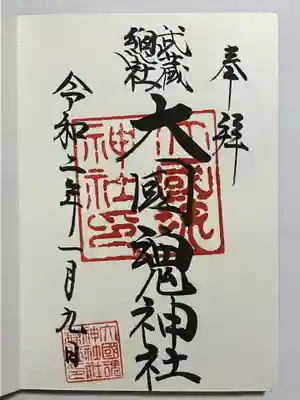 奉拝
武蔵
總社
大國魂神社
令和二年一月九日
大國魂
神社印
大國魂
神社